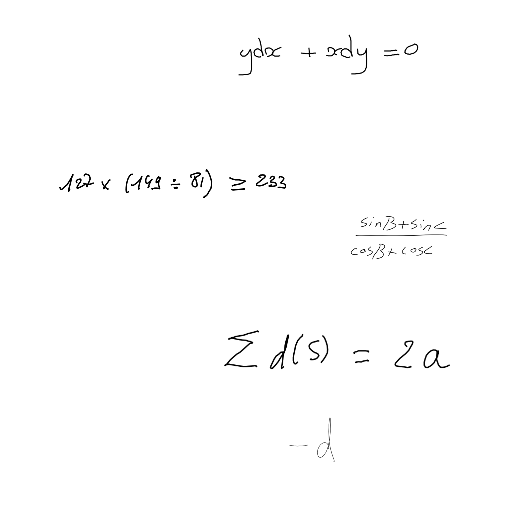 ydx + xdy = 0
127 × (149 ÷ 81) ≥ 233
sinB + sinC
cosB + cosC
∑ d(s) = 2a
- d